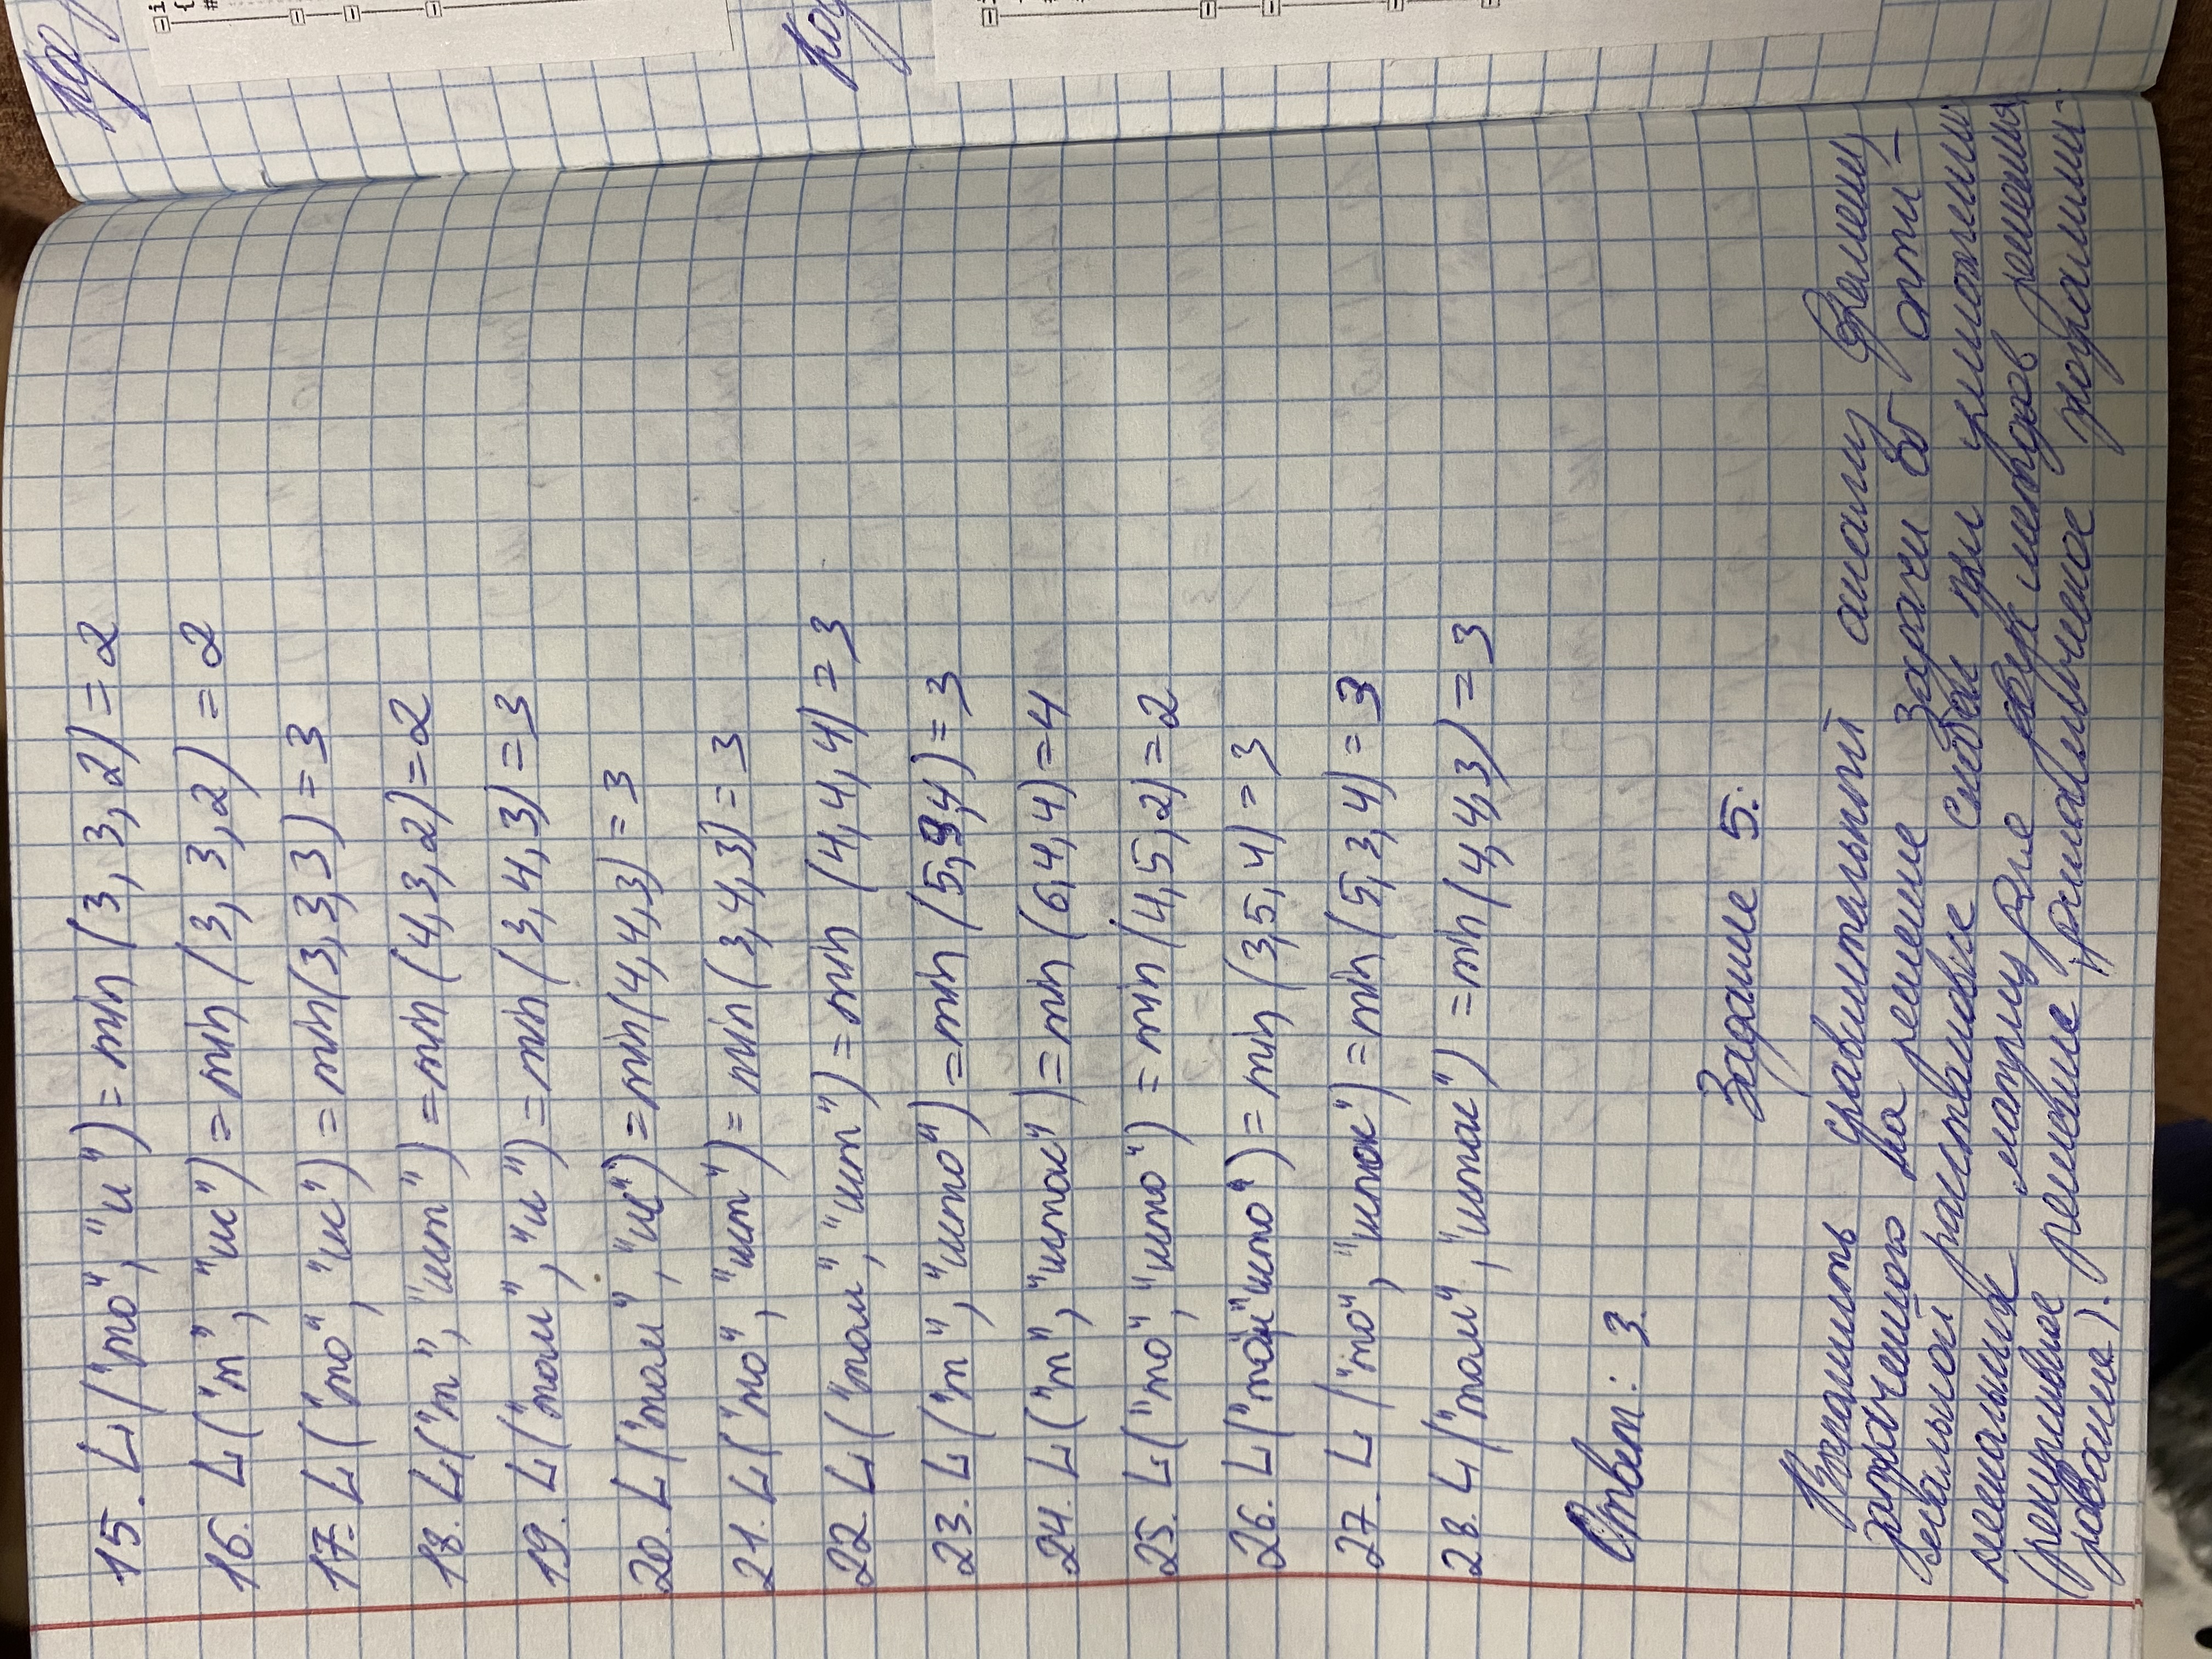 15. L("то", "и") = min (3, 3, 2) = 2
16. L("т", "ис") = min (3, 3, 2) = 2
17. L("то", "ис") = min(3,3,3) = 3
18. L("т", "ист") = min (4,3,2)=2
19. L("том", "и") = min (3,4,3) = 3
20. L("том", "ис") = min(4,4,3) = 3
21. L("то", "ист") = min(3,4,3) = 3
22. L("том", "ист") = min (4,4,4) = 3
23. L("т", "исто") = min (5, ,4) = 3
24. L("т", "исток") = min (6,4,4) = 4
25. L("то", "исто") = min (4,5,2) = 2
26. L("том", "исто") = min (3,5,4) = 3
27. L("то", "исток") = min (5,3,4) = 3
28. L("том", "исток") = min(4,4,3) = 3
Ответ: 3.
Задание 5:
Выполнить сравнительный анализ времени,
затраченного на решение задачи об опти-
мальной расстановке скобок при умножении
нескольких матриц для двух методов решения
(рекурсивное решение, динамическое программи-
рование).
Ко
i
{
#
Код
i